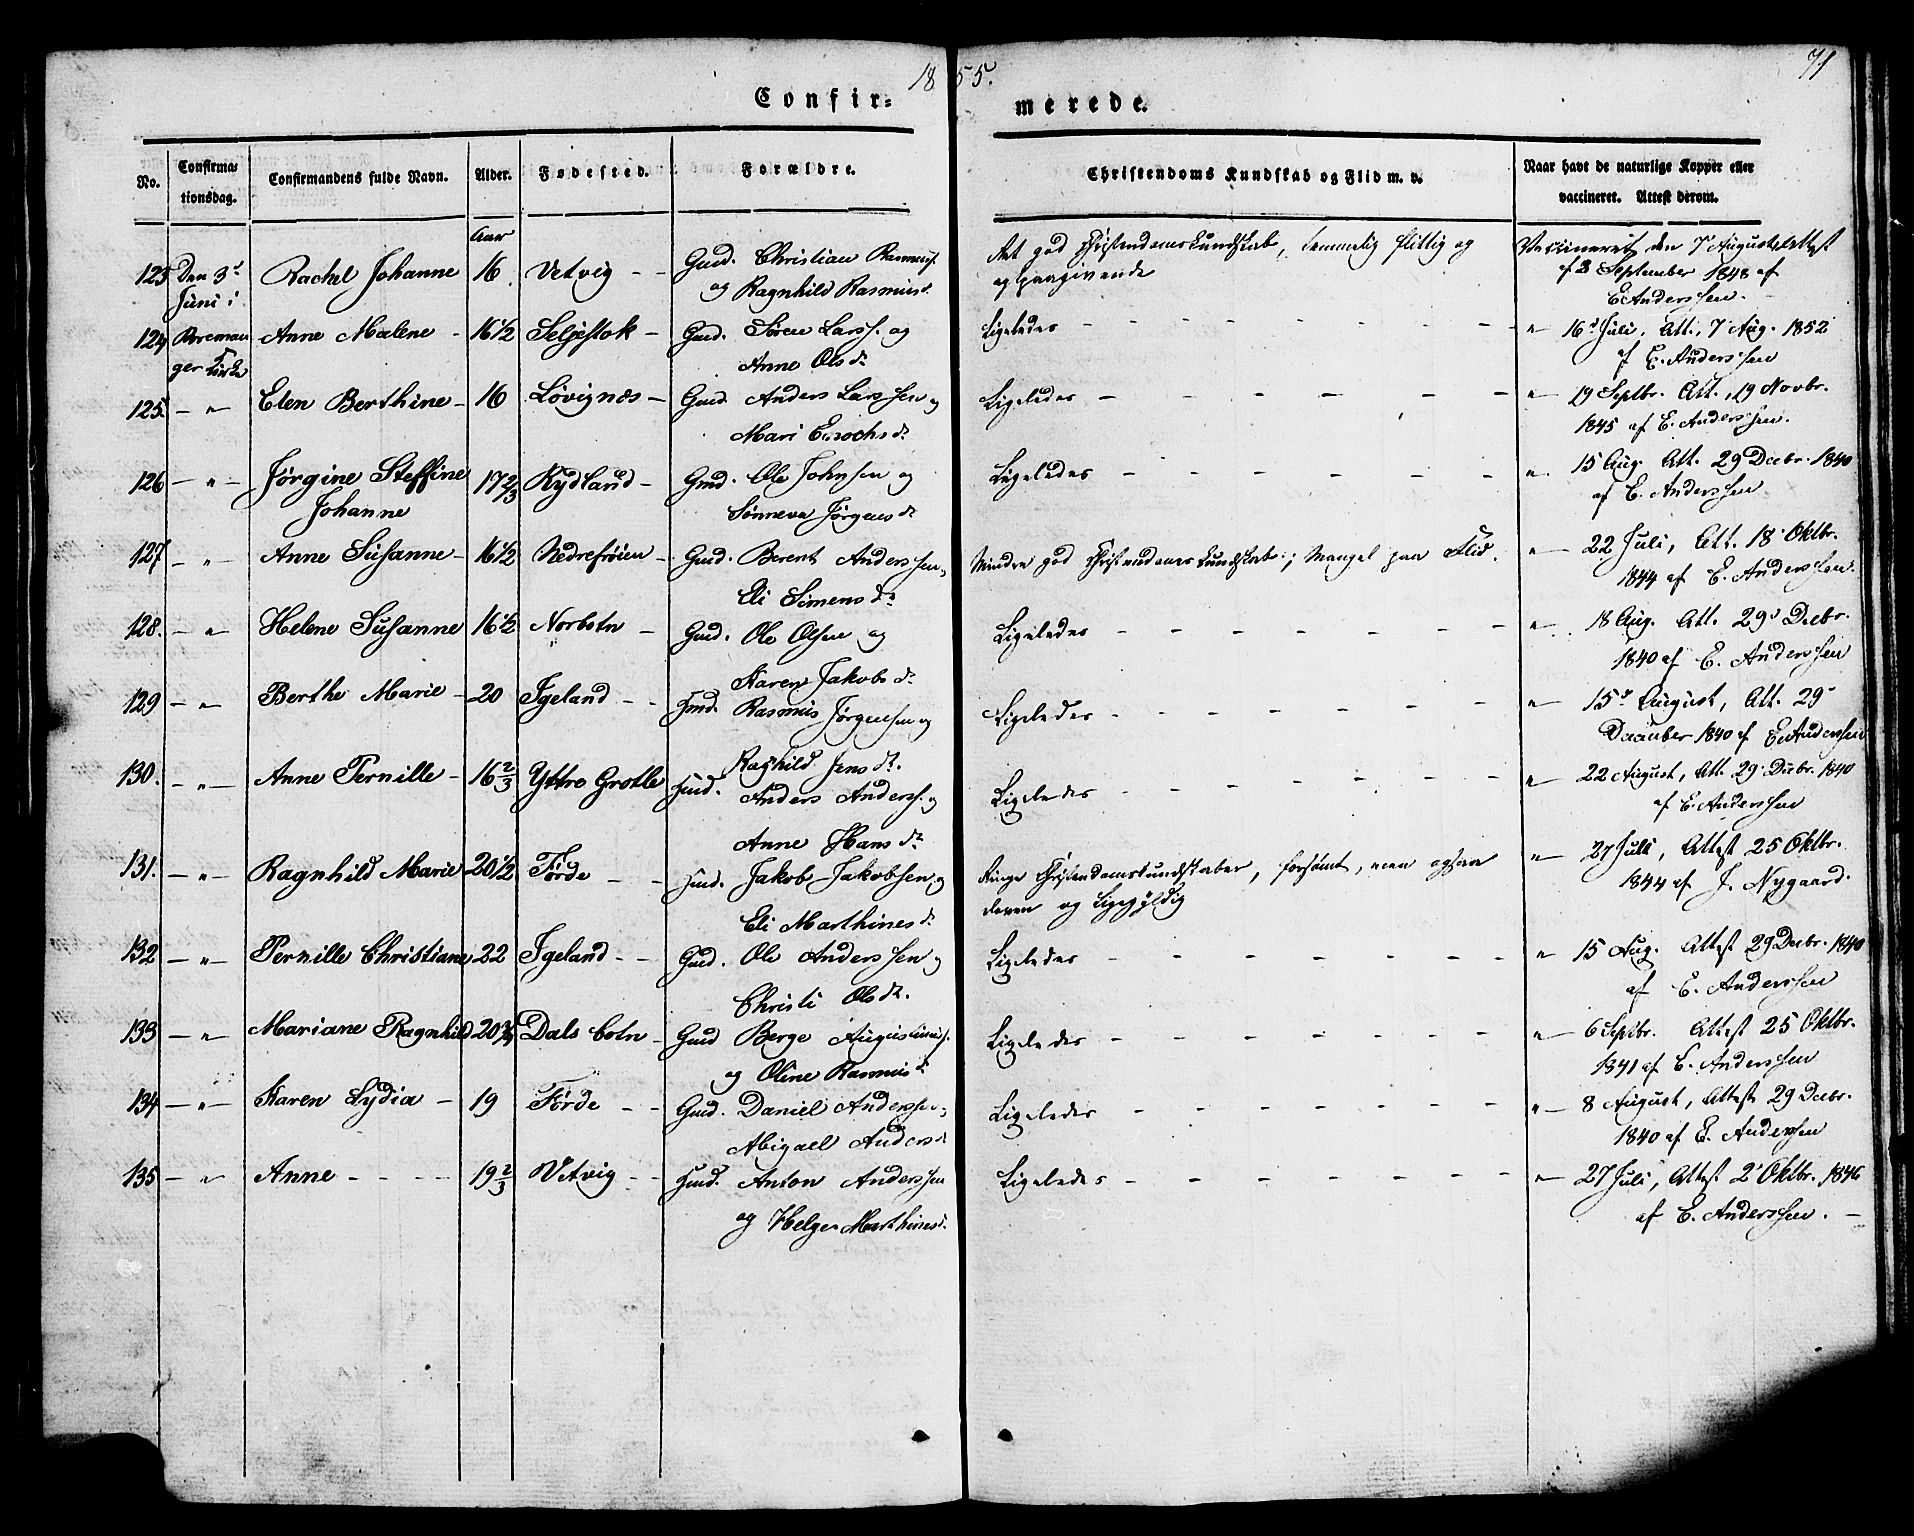 1855.
71
Confirmerede.
No.
Confirmationsdag.
Confirmandens fulde Navn.
Alder.
Fødested.
Forældre.
Christendoms Kundskab og Flid m. v.
Naar havt de naturlige Kopper eller vaccineret. Attest derom.
Aar
123 Den 3d Juni i Rachel Johanne 16. Vetvig - - Gmd. Christian Rasmuss. og Ragnhild Rasmusd. Ret god Christendomskundskab, temmelig flittig og
Vaccineret den 7 August Attest
af 3 September 1848 af
E Anderssen. -
124 Bremanger Kirke Anne Malene - 16 1/2 Seljestok - Gmd. Søren Larss. og
Anne Olsdr
Ligeledes - - - - - - - - " 16d Juli, Att. 7 Aug. 1852
af E. Anderssen
125. - " - Elen Berthine - 16 Løvignæs - Gmd. Anders Larssen og
Mari Enochsdr
Ligeledes - - - - - - - " 19 Septbr. Att. 19 Novbr.
1845 af E. Anderssen.
126 - " - Jørgine Steffine
Johanne
17 2/3 Rydland - Gmd. Ole Johnsen og
Sønneva Jørgensdr
Ligeledes - - - - - - - " 15 Aug. Att. 29 Decbr. 1840
af E. Anderssen
127 - " Anne Susanne - 16 1/2 Nedrefrøien - Gmd. Berent Anderssen,
Eli Simensdr
Mindre god Christendomskundskab; Mangel paa Flid. " 22 Juli, Att. 18 Oktbr.
1844 af E. Anderssen.
128. - " Helene Susanne 16 1/2 Norbotn - Gmd. Ole Olsen og
Karen Jakobsdr
Ligeledes - - - - - - - " 18 Aug. Att. 29d Decbr.
1840 af E. Anderssen
129 - " Berthe Marie - 20 Igeland - - Hmd. Rasmus Jørgensen og
Raghild Jensdr.
Ligeledes - - - - - - - " 15d August, Att. 29
December 1840 af E Anderssen
130. - " - Anne Pernille - 16 2/3 Yttro Grotle Hmd. Anders Anderss. og
Anne Hansdr
Ligeledes - - - - - - - " 22 August, Att. 29 Decbr. 1840
af E. Anderssen
131. - " Ragnhild Marie 20 1/2 Førde - - Hmd. Jakob Jakobsen og
Eli Marthinesdr
Ringe Christendomskundskaber, forsømt, men ogsaa
doven og ligegyldig
" 27 Juli, Attest 25 Oktbr.
1844 af J. Nygaard.
132 - " Pernille Christiane 22 Igeland - - Gmd. Ole Anderssen og
Christi Olsdr.
Ligeledes - - - - - - - " 15 Aug. Attest 29 Decbr. 1840
af E. Anderssen
133 - " Mariane Ragnhild 20 3/4 Dals botn - Gmd Berge Augustinuss.
og Oline Rasmusdr
Ligeledes - - - - - - - " 6 Septbr. Attest 25 Oktbr.
1841 af E. Anderssen
134 - " - Karen Lydia - 19 Førde - - Gmd. Daniel Anderssen,
Abigael Andersdr
Ligeledes - - - - - - - " 8 August, Attest 29 Decbr.
1840 af E. Anderssen
135 - " Anne - - - - 19 2/3 Vetvig - - Hmd. Anton Anderssen
og Helge Marthinesd.
Ligeledes - - - - - - - " 27 Juli, Attest 2d Oktbr. 1846
af E. Anderssen. -